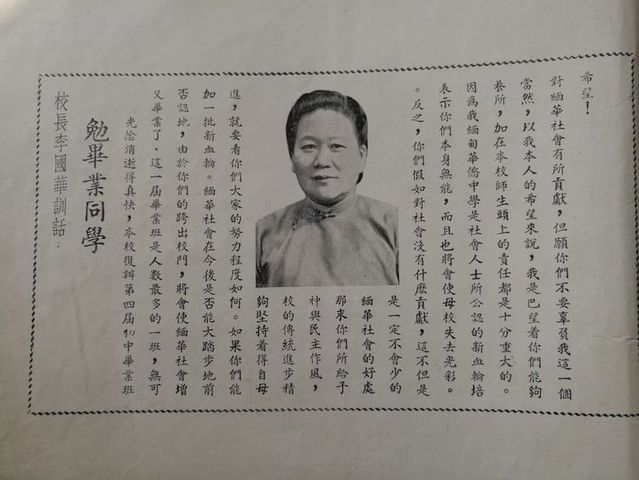 校長李國華訓話：
勉畢業同學
光陰消逝得真快，本校復辦第四屆初中畢業班
又畢業了．這一屆畢業班是人數最多的一班，無可
否認地，由於你們的跨出校門，將會使緬華社會增
加一批新血輪。緬華社會在今後是否能大踏步地前
進，就要看你們大家的努力程度如何。如果你們能
夠堅持着得自母
校的傳統進步精
神與民主作風，
那末你們所給予
緬華社會的好處
是一定不會少的
。反之，你們假如對社會沒有什麽貢獻，這不但是
表示你們本身無能，而且也將會使母校失去光彩。
因為我緬甸華僑中學是社會人士所公認的新血輪培
養所，加在本校師生頭上的責任都是十分重大的。
當然，以我本人的希望來說，我是巴望着你們能夠
對緬華社會有所貢獻，但願你們不要辜負我這一個
希望！